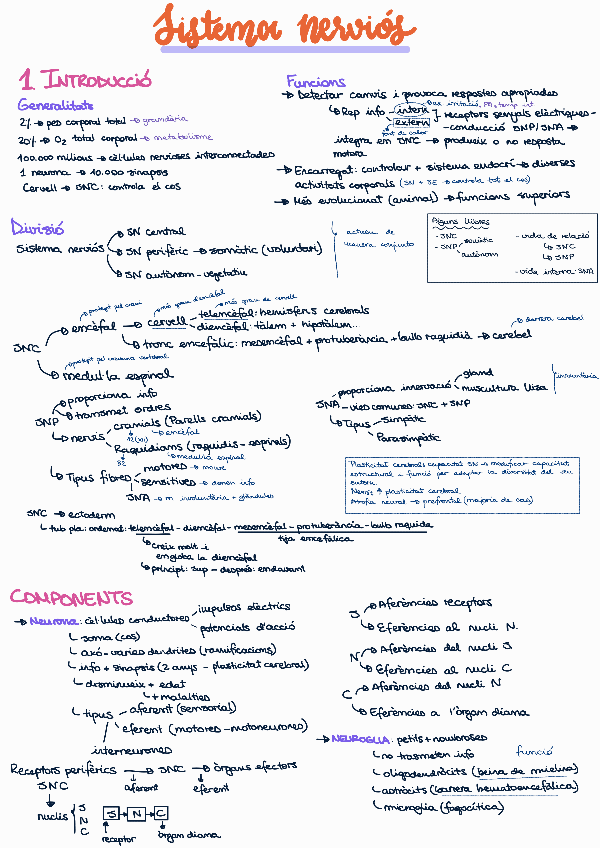 Sistema nerviós
1 INTRODUCCIÓ
Generalitats
2% → pes corporal total → grandària
20% → O₂ total corporal → metabolisme
100.000 milions → cèl·lules nervioses interconnectades
1 neurona → 10.000 sinapsis
Cervell → SNC: controla el cos
Funcions
→ Detectar canvis i provoca respostes apropiades
→ Rep info
intern
extern
font de calor
receptors senyals elèctriques -
- conducció SNP/SNA →
integra em SNC → produeix o no resposta
motora
→ Encarregat: controlar + sistema endocrí → diverses
activitats corporals (SN + SE → controla tot el cos)
→ Més evolucionat (animal) → funcions superiors
Divisió
Sistema nerviós
→ SN central
→ SN perifèric → somàtic (voluntari)
→ SN autònom - vegetatiu
actuen de
manera conjunta
Alguns llibres
- SNC
- SNP
somàtic
autònom
- vida de relació
↳ SNC
↳ SNP
- vida interna SNA
SNC
→ encèfal → cervell
protegit pel crani
més gran d'encèfal
→ més gran de cervell
telencèfal: hemisferis cerebrals
diencèfal: tàlem + hipotàlem..
→ tronc encefàlic: mesencèfal + protuberància + bulb raquidià → cerebel
→ medul·la espinal
protegit pel columna vertebral
SNP
→ proporciona info
→ transmet ordres
→ nervis
cranials (Parells cranials)
12 (XII)
→ encèfal
Raquidians (raquidis - espinals)
32
→ medul·la espinal
→ Tipus fibres
motores → moure
sensitives → donen info
SNA → m. involuntària + glàndules
SNA
proporciona innervació
gland
muscultura llisa
involuntària
- vies comunes: SNC + SNP
→ Tipus
Simpàtic
Parasimpàtic
Plasticitat cerebral: capacitat SN → modificar capacitat
estructural - funció per adaptar la diversitat del seu
entorn.
Nens: ↑ plasticitat cerebral.
Atròfia neural → prefrontal (majoria de cas)
SNC → ectoderm
↳ tub pla: ordenat: telencèfal - diencèfal - mesencèfal - protuberància - bulb raquida
tija encefàlica
→ creix molt i
engloba la diencèfal
→ principi: sup - després: endavant
COMPONENTS
→ Neurona: cèl·lules conductores
impulsos elèctrics
potencials d'acció
↳ soma (cos)
↳ axó - varies dendrites (ramificacions)
↳ info + sinapsis (2 anys - plasticitat cerebral)
↳ disminueix + edat
↳ + malalties
↳ tipus
aferent (sensorial)
eferent (motores - motoneurones)
interneurones
Receptors perifèrics → SNC → òrgans efectors
aferent
eferent
SNC
nuclis
S
N
C
S → N → C
receptor
òrgan diana
S
→ Aferències receptors
→ Eferències al nucli N.
N
→ Aferències del nucli S
→ Eferències al nucli C
C
→ Aferències del nucli N
→ Eferències a l'òrgan diana
→ NEURÒGLIA: petits + nombroses
↳ no trasmeten info
funció
↳ oligodendròcits (beina de mielina)
↳ astròcits (barrera hematoencefàlica)
↳ micròglia (fagocítica)